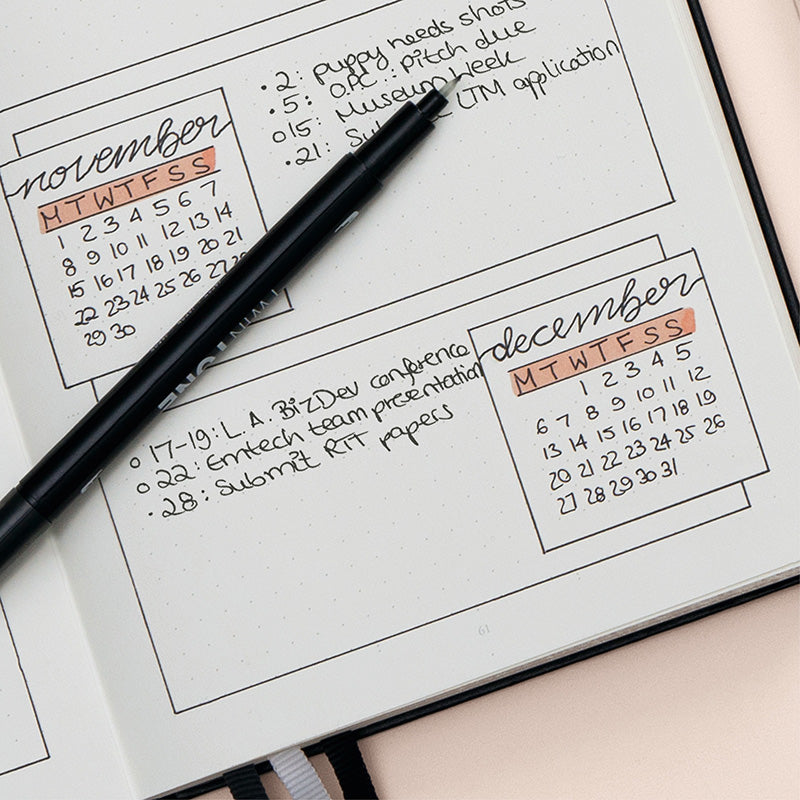 • 2: puppy needs shots
• 5: OPC: pitch due
o 15: Museum Week
• 21: LTM application
november
M T W T F S S
1 2 3 4 5 6 7
8 9 10 11 12 13 14
15 16 17 18 19 20 21
22 23 24 25 26 27 28
29 30
o 17-19: L.A. BizDev conference
o 22: Emtech team presentation
• 28: Submit RTT papers
december
M T W T F S S
1 2 3 4 5
6 7 8 9 10 11 12
13 14 15 16 17 18 19
20 21 22 23 24 25 26
27 28 29 30 31
TWIN TONE
61